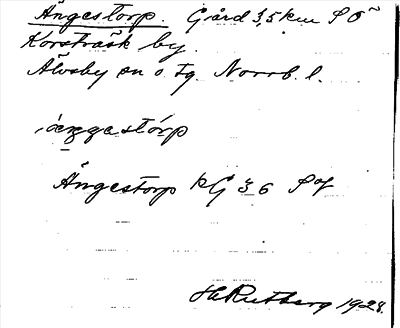 Ängestorp. Gård 3,5 km S Ö
Korsträsk by.
Älvsby sn o. tg. Norrb. l.
ängestórp
Ängestorp KG 36 Sof
H Rutberg 1928.